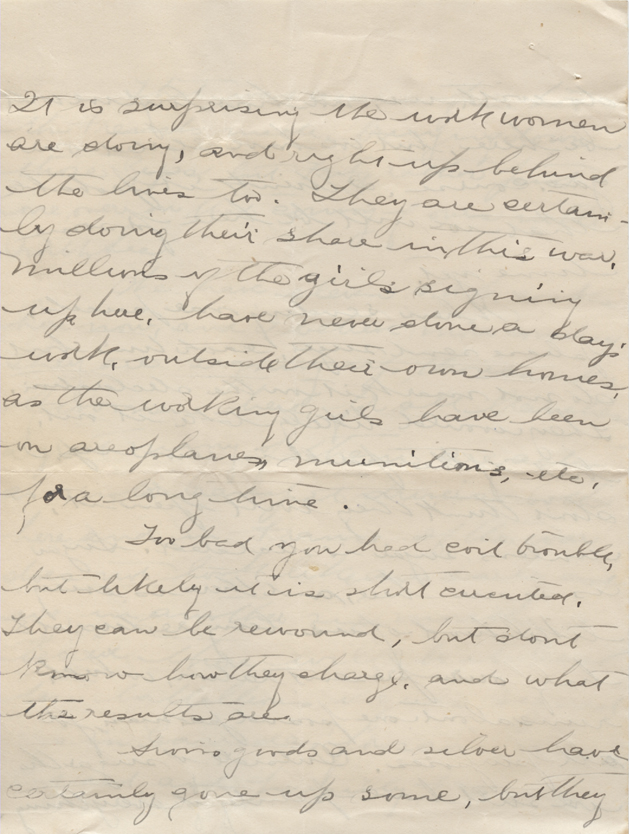 It is surprising the work women
are doing, and right up behind
the lines too. They are certain-
ly doing their share in this war.
Millions of the girls signing
up here, have never done a day's
work, outside their own homes,
as the working girls have been
on areoplanes, munitions, etc,
for a long time.
Too bad you had coil trouble,
but likely it is short circuited.
They can be rewound, but dont
know how they charge, and what
the results are.
goods and silver have
certainly gone up some, but they